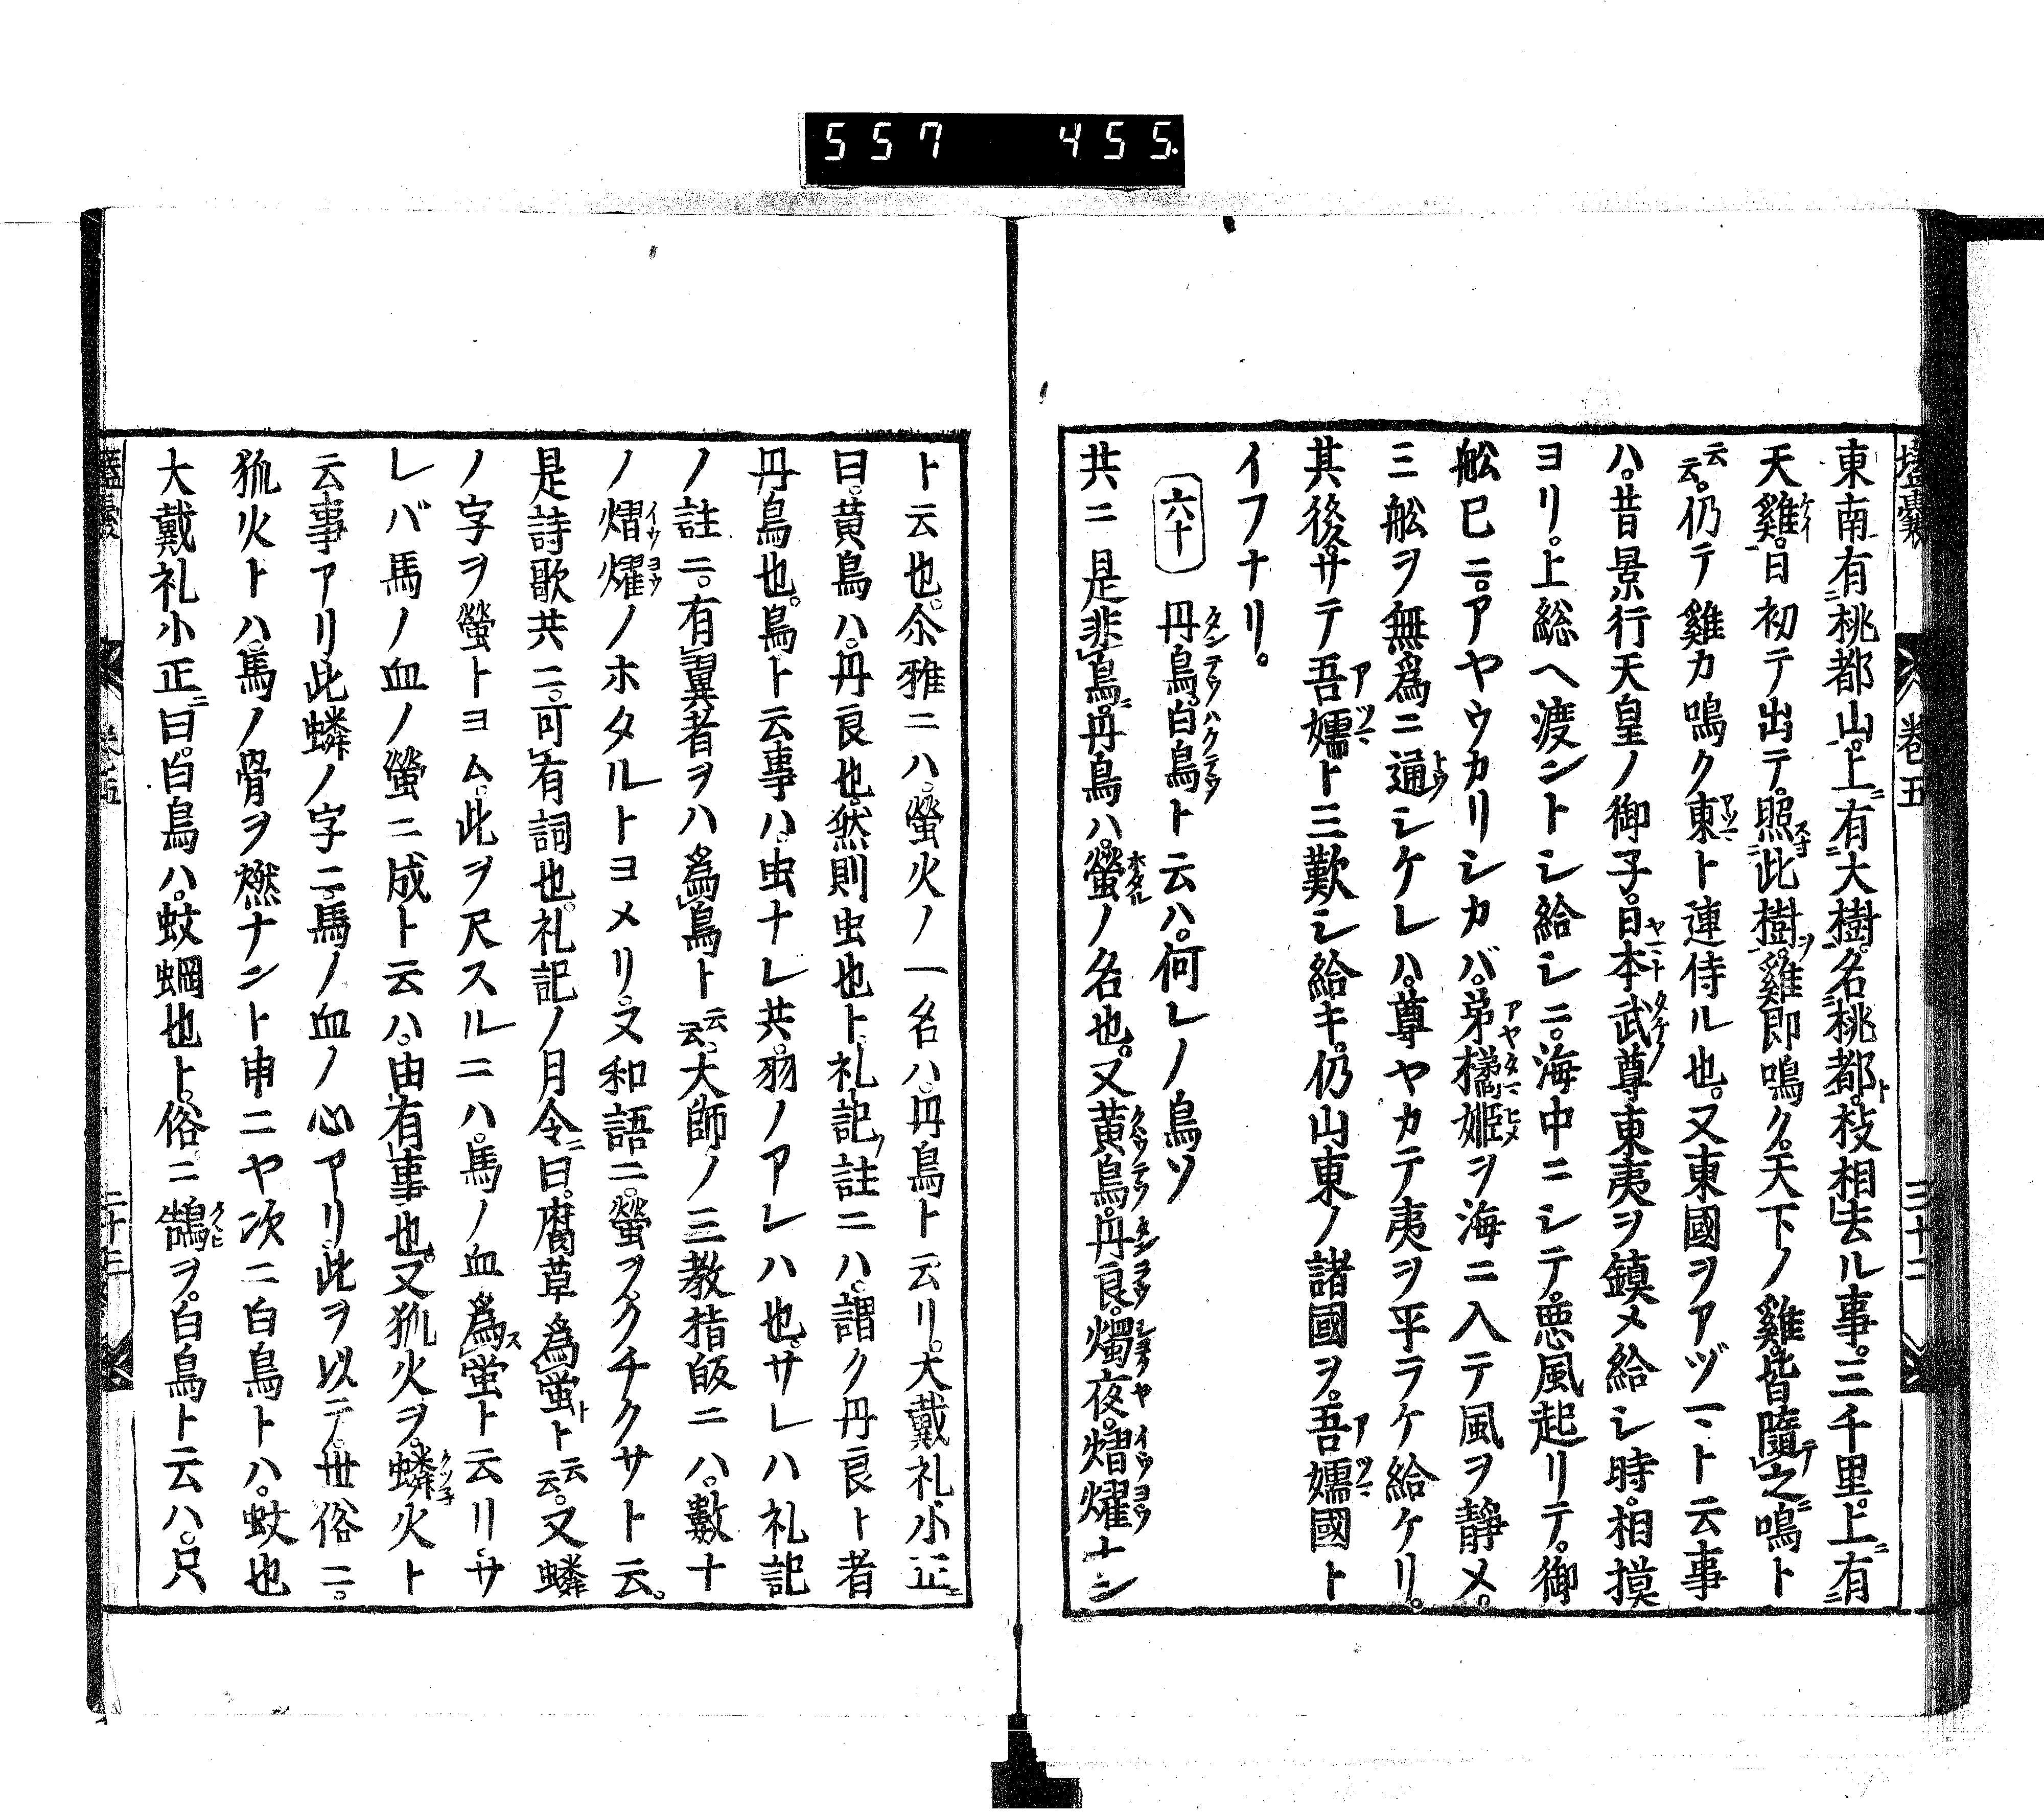 557 455.
壒囊 巻五 三十二
東南有桃都山。上有大樹。名桃都。枝相去ル事。三千里。上有
天雞。日初テ出テ。照此樹。雞即鳴ク。天下ノ雞。皆隨之鳴ト
云云。仍テ雞カ鳴ク東ト連侍ル也。又東國ヲアヅマト云事
ハ。昔景行天皇ノ御子。日本武尊東夷ヲ鎮メ給シ時。相摸
ヨリ。上総ヘ渡ントシ給シニ。海中ニシテ。悪風起リテ。御
舩巳ニ。アヤウカリシカバ。弟橘姫ヲ海ニ入テ風ヲ静メ。
三舩ヲ無爲ニ通シケレハ。尊ヤカテ夷ヲ平ラケ給ケリ。
其後。サテ吾嬬ト三歎シ給キ。仍山東ノ諸國ヲ。吾嬬國ト
イフナリ。
六十 丹鳥。白鳥ト云ハ。何レノ鳥ソ
共ニ是非鳥。丹鳥ハ。螢ノ名也。又黄鳥。丹良。燭夜。熠燿ナン
ト云也。尒雅ニハ。螢火ノ一名ハ。丹鳥ト云リ。大戴礼小正
曰。黄鳥ハ。丹良也。然則虫也ト。礼記ノ註ニハ。謂ク丹良ト者
丹鳥也。鳥ト云事ハ。虫ナレ共。羽ノアレハ也。サレハ礼記
ノ註ニ。有翼者ヲハ爲鳥ト云云。大師ノ三教指皈ニハ。數十
ノ熠燿ノホタルトヨメリ。又和語ニ。螢ヲ。クチクサト云。
是詩歌共ニ。可有詞也。礼記ノ月令曰。腐草爲螢ト云云。又蟒
ノ字ヲ螢トヨム。此ヲ尺スルニハ。馬ノ血爲螢ト云リ。サ
レバ馬ノ血ノ螢ニ成ト云ハ。由有事也。又狐火ヲ。蟒火ト
云事アリ。此蟒ノ字ニ。馬ノ血ノ心アリ。此ヲ以テ。世俗ニ。
狐火トハ。馬ノ骨ヲ燃ナント申ニヤ次ニ白鳥トハ。蚊也
大戴礼小正曰。白鳥ハ。蚊蜹也ト。俗ニ鵠ヲ。白鳥ト云ハ。只